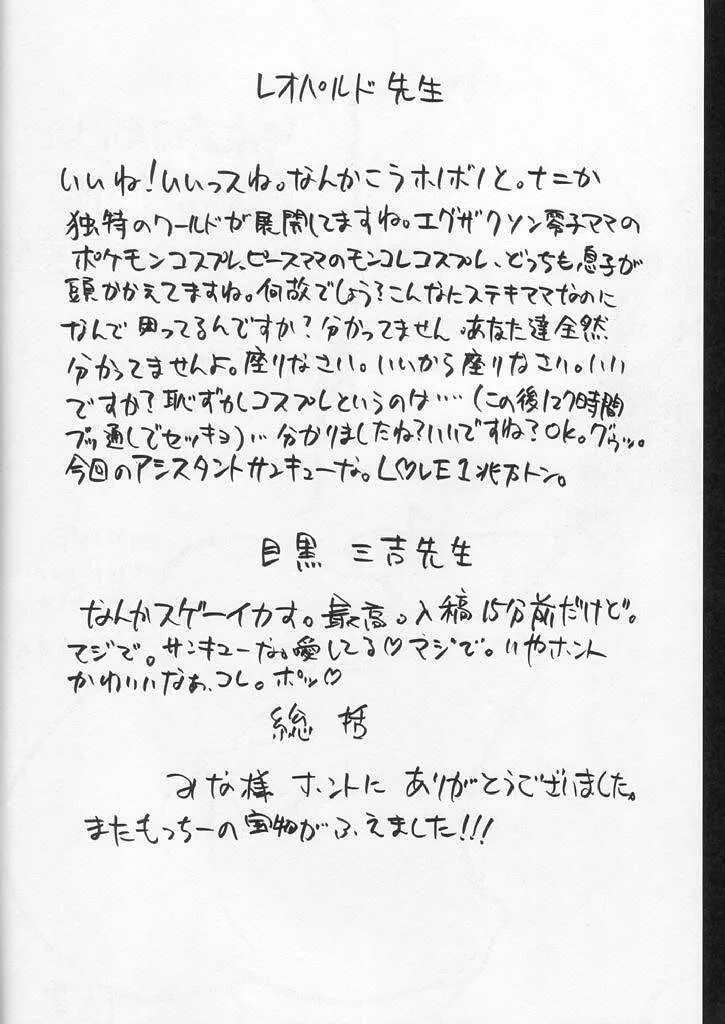 レオパルド先生
いいね!いいっスね。なんかこうホノボノと。ナニか
独特のワールドが展開してますね。エグザクソン零子ママの
ポケモンコスプレ、ピースママのモンコレコスプレ、どっちも息子が
頭かかえてますね。何故でしょう?こんなにステキママなのに
なんで困ってるんですか?分かってません。あなた達全然
分かってませんよ。座りなさい。いいから座りなさい。いい
ですか?恥ずかしコスプレというのは…(この後127時間
ブッ通しでセッキョ)…分かりましたね?いいですね?OK。グゥッ。
今回のアシスタントサンキューな。L♡VE1兆万トン。
目黒 三吉先生
なんかスゲーイカす。最高。入稿15分前だけど。
マジで。サンキューな。愛してる♡マジで。いやホント
かわいいなぁ、コレ。ポッ♡
総括
みな様 ホントに ありがとうございました。
またもっちーの宝物がふえました!!!